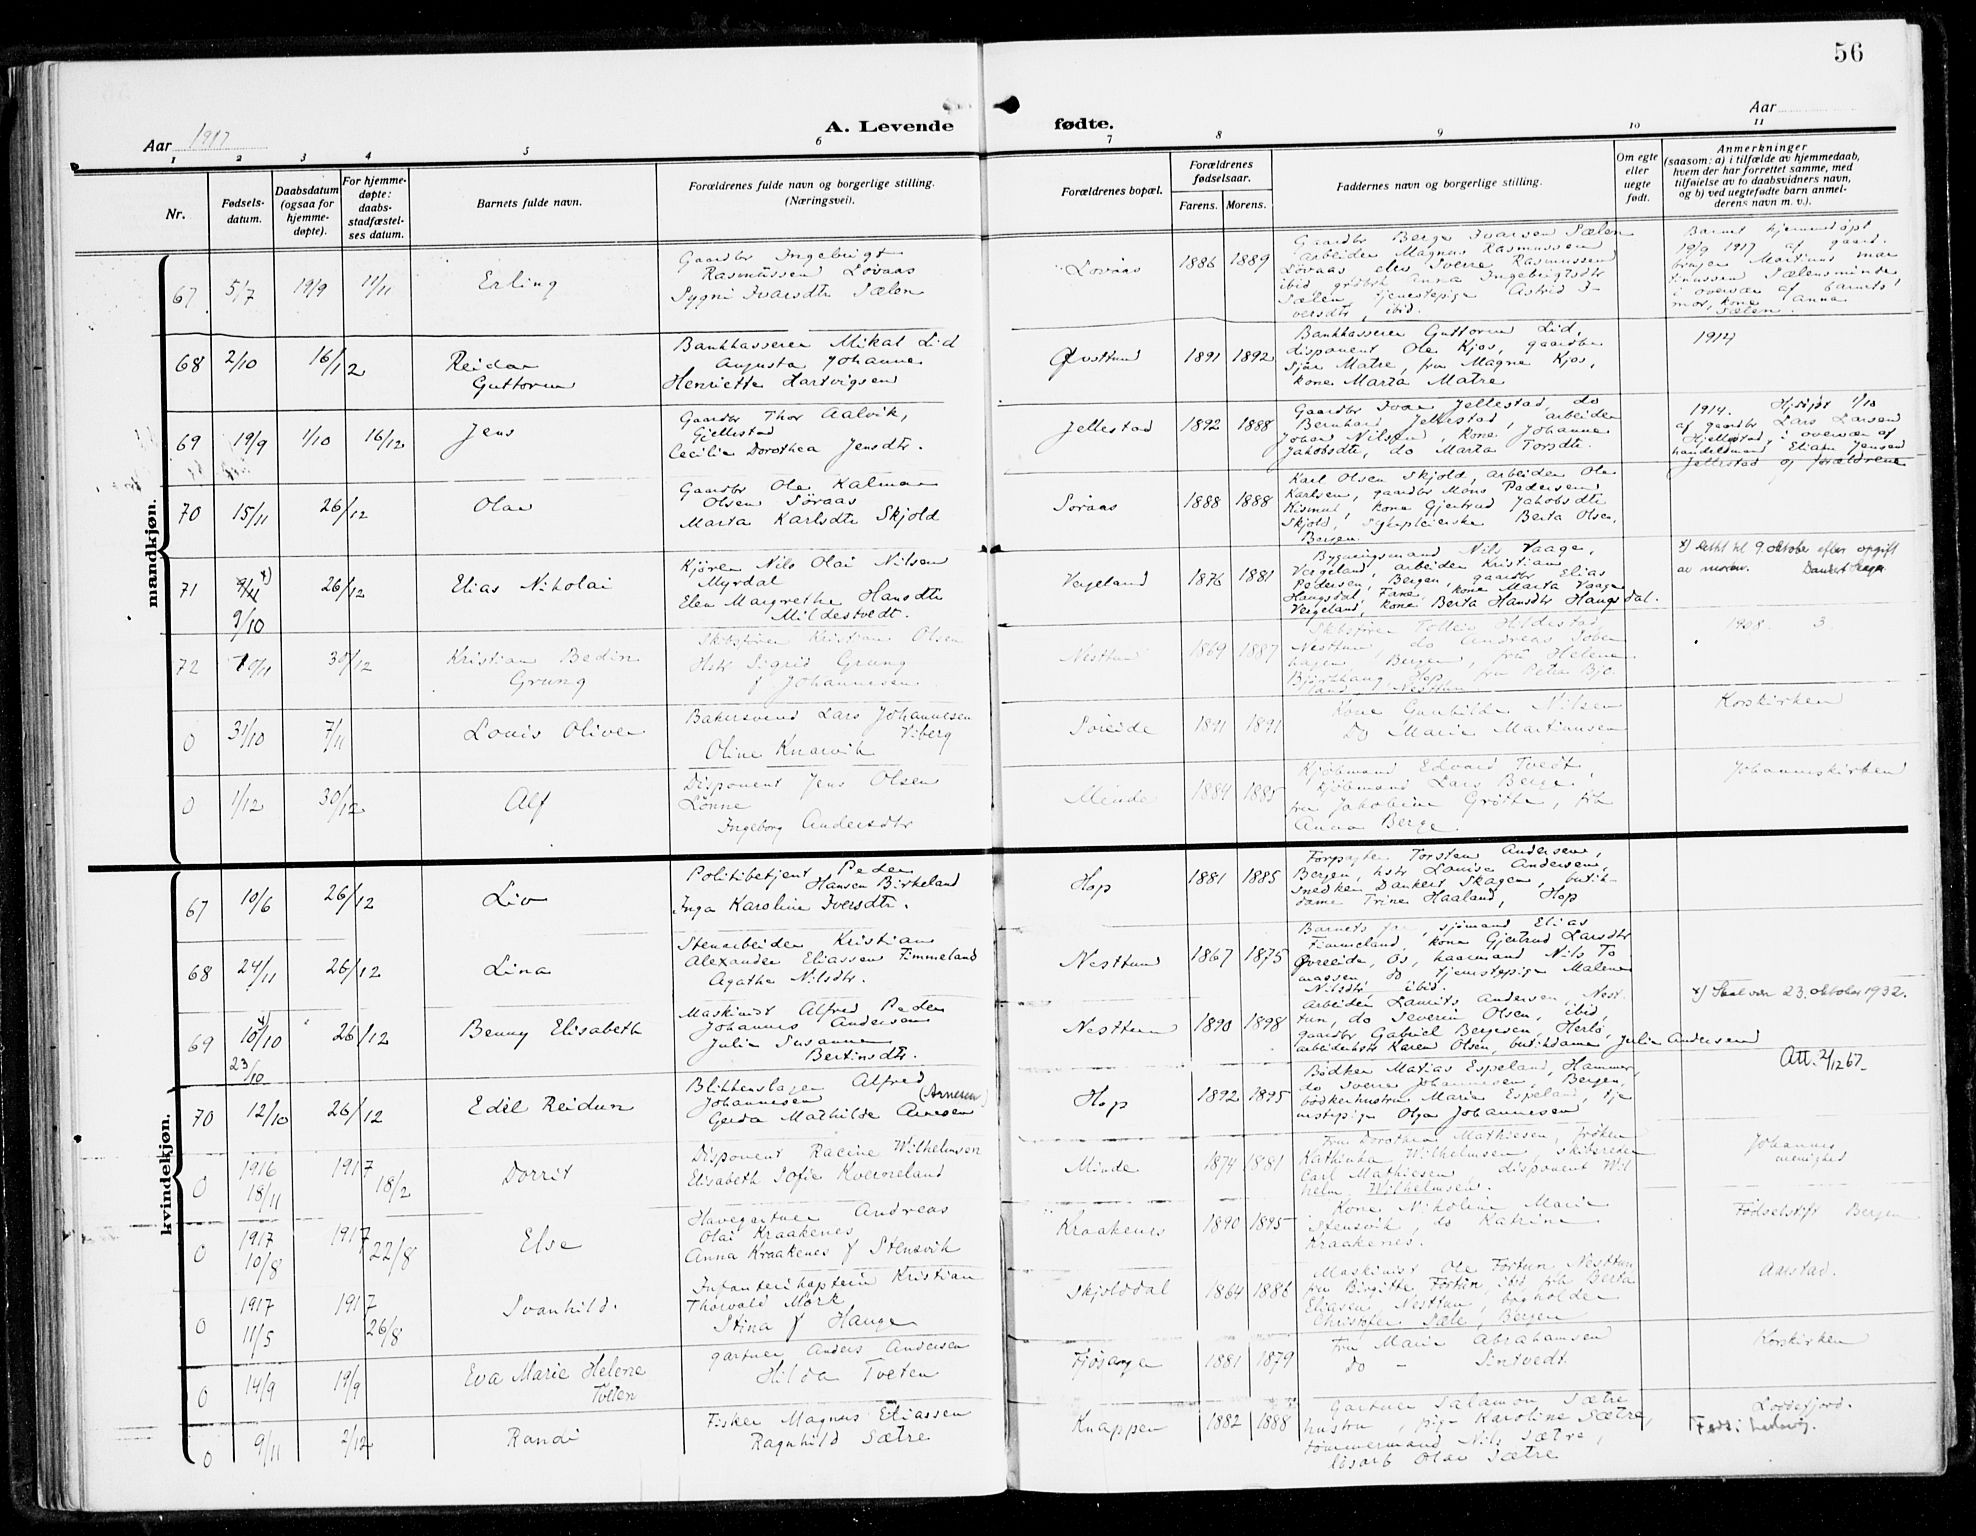 56
Aar 1917
A. Levende
fødte.
Aar
1 2 3 4 5 6 7 8 9 10 11
Nr.
Fødsels-
datum.
Daabsdatum
(ogsaa for
hjemme-
døpte).
For hjemme-
døpte:
daabs-
stadfæstel-
ses datum.
Barnets fulde navn.
Forældrenes fulde navn og borgerlige stilling.
(Næringsvei).
Forældrenes bopæl.
Forældrenes
fødselsaar.
Farens. Morens.
Faddernes navn og borgerlige stilling.
Om egte
eller
uegte
født.
Anmerkninger
(saasom: a) i tilfælde av hjemmedaab,
hvem der har forrettet samme, med
tilføielse av to daabsvidners navn,
og b) ved uegtefødte barn anmel-
derens navn m. v.).
mandkjøn.
67 5/7 19/9 11/11 Erling
Gaardbr Ingebrigt
Rasmussen Løvaas
Sygni Ivarsdtr Sælen
Løvaas 1886 1889
Gaardbr Berge Ivarsen Sælen
arbeider Magnus Rasmussen
Løvaas elev Sverre Rasmussen
ibid grdbrk Anna Ingebrigtsdtr
Sælen, tjenestepige Astrid I-
versdtr, ibid.
Barnet hjemmedøpt
19/9 1917 af gaard-
bruger Martinus
Sælensminde
i overvær af barnets
mor, kone Anna
Sælen.
68 2/10 16/12 Reidar
Guttorm
Bankkasserer Mikal Lid
Augusta Johanne
Henriette Hartvigsen
Øvsttun 1891 1892
Bankkasserer Guttorm Lid,
disponent Ole Kjos, gaardbr
Sjur Matre, fru Magne Kjos,
kone Marta Matre
1914
69 19/9 1/10 16/12 Jens
Gaardbr Thor Aalvik,
Gjellestad
Cecilie Dorothea Jensdtr.
Jellestad 1892 1888
Gaardbr Ivar Jellestad, do
Bernhard Jellestad, arbeider
Johan Nilsen, kone Johanne
Jakobsdtr, do Marta Torsdtr.
1914. Hjdøpt 1/10
af gaardbr Lars Larsen
Hjellestad, i overvær af
handelsmand Eliam Jensen
Jellestad og forældrene
70 15/11 26/12 Olav
Gaardbr Ole Kalmar
Olsen Søraas
Marta Karlsdtr Skjold
Søraas 1888 1888
Karl Olsen Skjold, arbeider Ole
Karlsen, gaardbr Mons Pedersen
Kismul, kone Gjertrud Jakobsdtr
Skjold, sykepleierske Berta Olsen,
Bergen.
71 9/11 x) 26/12 Elias Nikolai
9/10
Kjører Nils Olai Nilsen
Myrdal
Elen Margrethe Hansdtr
Mildestvedt.
Veigeland 1876 1881
Bygningsmand Nils Vaage,
Veigeland, arbeider Kristian
Pedersen, Bergen, gaardbr Elias
Haugsdal, Fane, kone Marta Vaage
Veigeland, kone Berta Hansdtr Haugsdal.
x) Rettet til 9. oktober efter opgift
av moren. Dankert Skagen
72 10/11 30/12 Kristian Bedin
Grung
Skibsfører Kristian Olsen
Hstr Sigrid Grung
f Johannesen
Nesttun 1869 1887
Skibsfører Tolleis Hildestad
Nesttun, do Andreas
Bergen, fru Helene
Bjørkhaug, Hop, fru Petra
Nesttun
1908. 3.
0 31/10 7/11 Louis Oliver
Bakersvend Lars Johannesen
Viberg
Oline Knarvik
Søreide 1891 1891
Kone Gunhilde Nilsen
Do Marie Martinusen
Korskirken
0 1/12 30/12 Alf
Disponent Jens Olsen
Lønne
Ingeborg Andersdtr
Minde 1884 1885
Kjøbmand Edvard Tvedt,
kjøbmand Lars Berge,
fru Jakobine Grøtte, frk
Anna Berge.
Johanneskirken
kvindekjøn.
67 10/6 26/12 Liv
Politibetjent Peder
Hansen Birkeland
Inga Karoline Iversdtr.
Hop 1881 1885
Forpagter Torsten Andersen,
Bergen, hstr Louise Andersen,
snedker Dankert Skagen, butik-
dame Trine Haaland, Hop
68 24/11 26/12 Lina
Stenarbeider Kristian
Alexander Eliassen Fimmeland
Agathe Nilsdtr.
Nesttun 1867 1875
Barnets far, sjømand Elias
Fimmeland, kone Gjertrud Larsdtr
Øvreide, Os, haarmand Nils To
massen do, tjenestepige Malene
Nilsdtr ibid.
69 10/10 x) 26/12 Benny Elisabeth
23/10
Maskinist Alfred Peder
Johannes Andersen
Julie Susanne
Bertinsdtr.
Nesttun 1890 1898
Arbeider Laurits Andersen, Nest-
tun, do Severin Olsen, ibid,
gaardbr Gabriel Bergesen, Herlø,
arbeiderhstr Karen Olsen, butikdame Julie Andersen
x) Skal være 23. oktober 1932.
Att. 2/12 67.
70 12/10 26/12 Edel Reidun
Blikkenslager Alfred
Johannesen (Arnesen)
Gerda Mathilde Arnesen
Hop 1892 1895
Bødker Matias Espeland, Hammer,
do Sverre Johannesen, Bergen,
bødkerhustru Marie Espeland, tje
nestepige Olga Johannesen
0 1916
18/11 1917
18/2 Dorrit
Disponent Racine Wilhelmsen
Elisabeth Sofie Kverneland
Minde 1874 1881
Fru Dorothea Mathiesen, frøken
Kathinka Wilhelmsen, skibsreder
Carl Mathiesen disponent Wil
helm Wilhelmsen.
Johannes
menighed
0 1917
10/8 1917
22/8 Else
Havegartner Andreas
Olai Kraakenes
Anna Kraakenes f Stensvik
Kraakenes 1890 1895
Kone Nikoline Marie
Stensvik, do Katrine
Kraakenes.
Fødselstift Bergen
0 1917
11/5 1917
26/8 Svanhild.
Infanterikaptein Kristian
Thorvald Mørk
Stina f Hauge
Skjolddal 1864 1886
Maskinist Ole Fortun, Nesttun
fru Birgitte Fortun, ibid, frk Berta
Eliasen, Nesttun, bogholder
Christofer Sæle, Bergen
Aarstad.
0 14/9 19/9 Eva Marie Helene
Tveten
Gartner Anders Andersen
Hilda Tveten
Fjøsanger 1881 1879
Fru Marie Abrahamsen
Do - Sintvedt.
Korskirken
0 9/11 2/12 Randi
Fisker Magnus Eliassen
Ragnhild Sætre
Knappen 1882 1888
Gartner Salamon Sætre
hustru, pige Karoline Sætre,
tømmermand Nils Sætre,
løsarb Olav Sætre
Loddefjord.